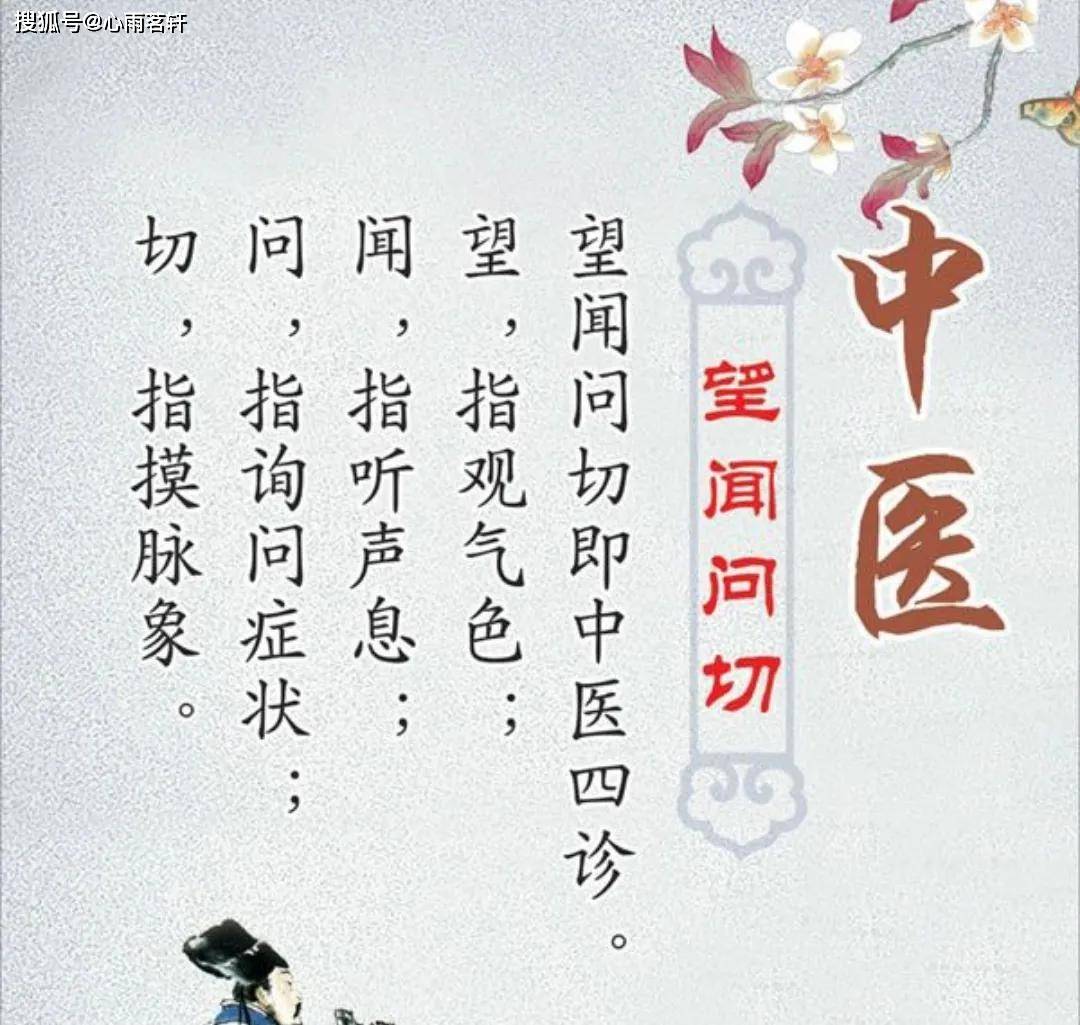 搜狐号@心雨茗轩
中医
望闻问切
望闻问切即中医四诊。
望，指观气色；
闻，指听声息；
问，指询问症状；
切，指摸脉象。